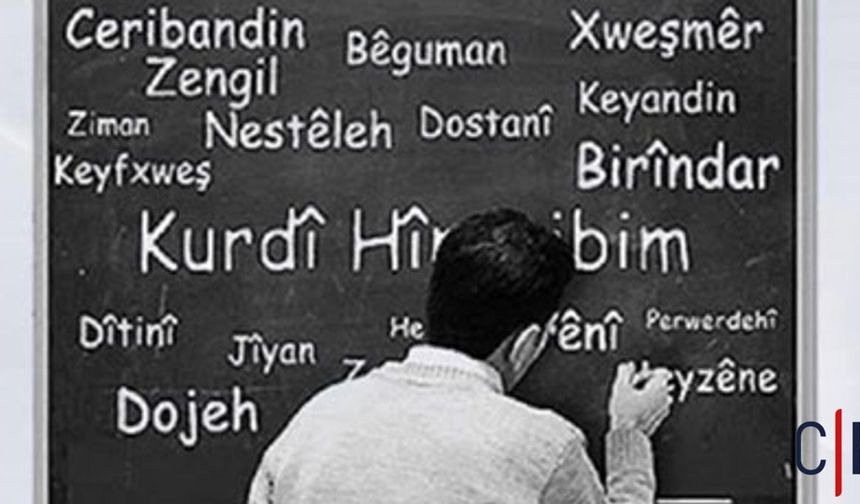 Ceribandin Bêguman Xweşmêr
Zengil Keyandin
Ziman Nestêleh Dostanî
Keyfxweş Birîndar
Kurdî
Dîtinî Perwerdehî
Jîyan
Dojeh